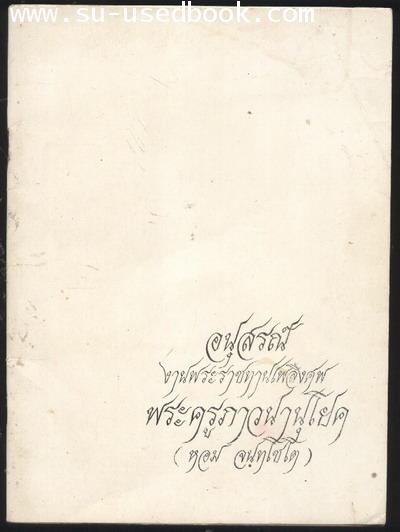 www.su-usedbook.com
อนุสรณ์
งานพระราชทานเพลิงศพ
พระครูภาวนานุโยค
(หอม จนฺทโชโต)